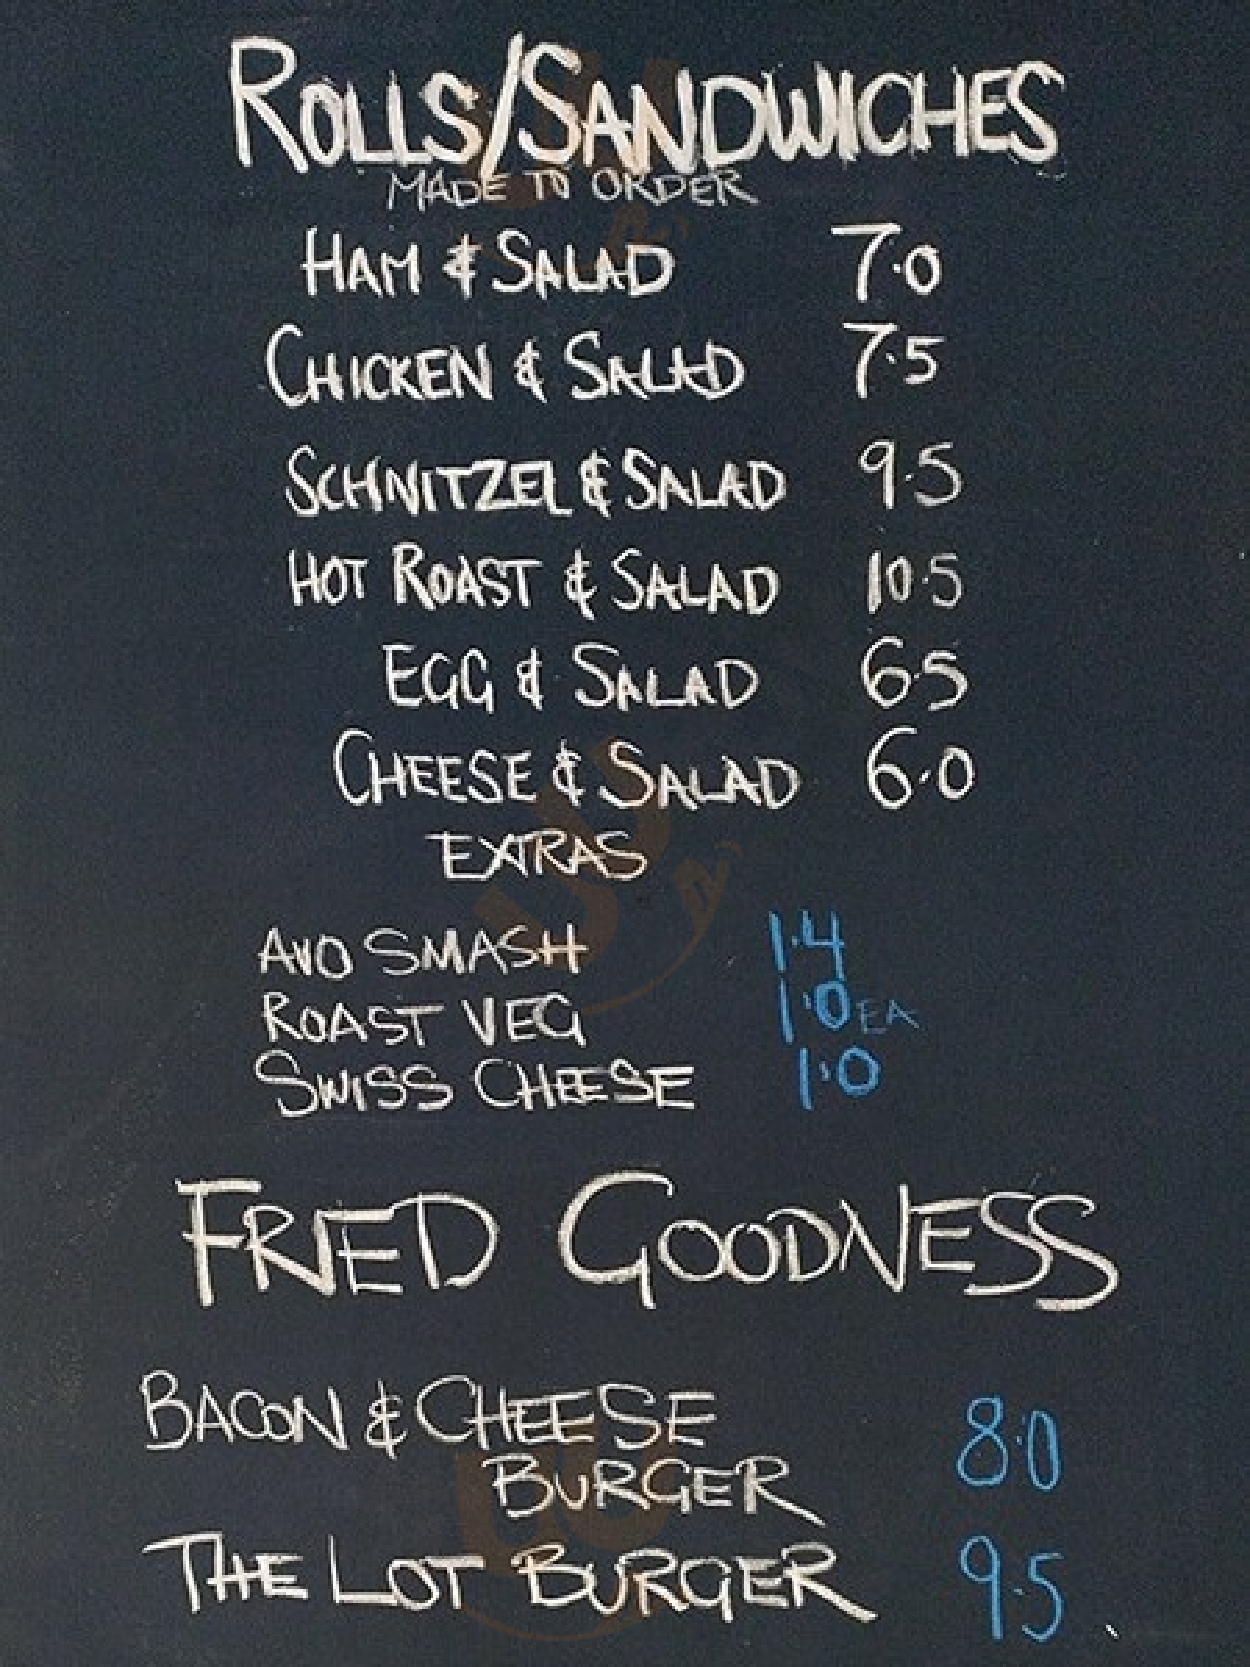 ROLLS/SANDWICHES
MADE TO ORDER
HAM & SALAD 7.0
CHICKEN & SALAD 7.5
SCHNITZEL & SALAD 9.5
HOT ROAST & SALAD 10.5
EGG & SALAD 6.5
CHEESE & SALAD 6.0
EXTRAS
AVO SMASH 1.4
ROAST VEG 1.0 EA
SWISS CHEESE 1.0
FRIED GOODNESS
BACON & CHEESE
BURGER 8.0
THE LOT BURGER 9.5